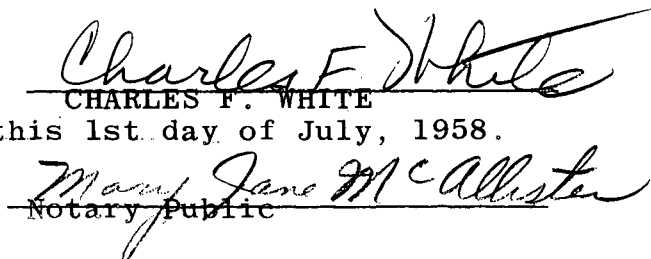 Charles F. White
CHARLES F. WHITE
this 1st day of July, 1958.
Mary Jane McAllister
Notary Public